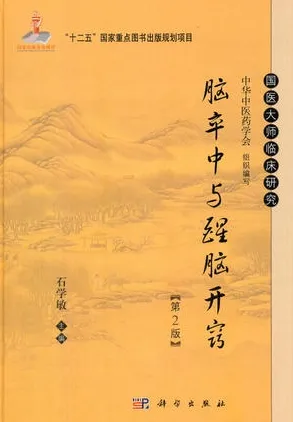 "十二五"国家重点图书出版规划项目
国医大师临床研究
中华中医药学会
组织编写
脑卒中与醒脑开窍
【第2版】
石学敏
主编
科学出版社